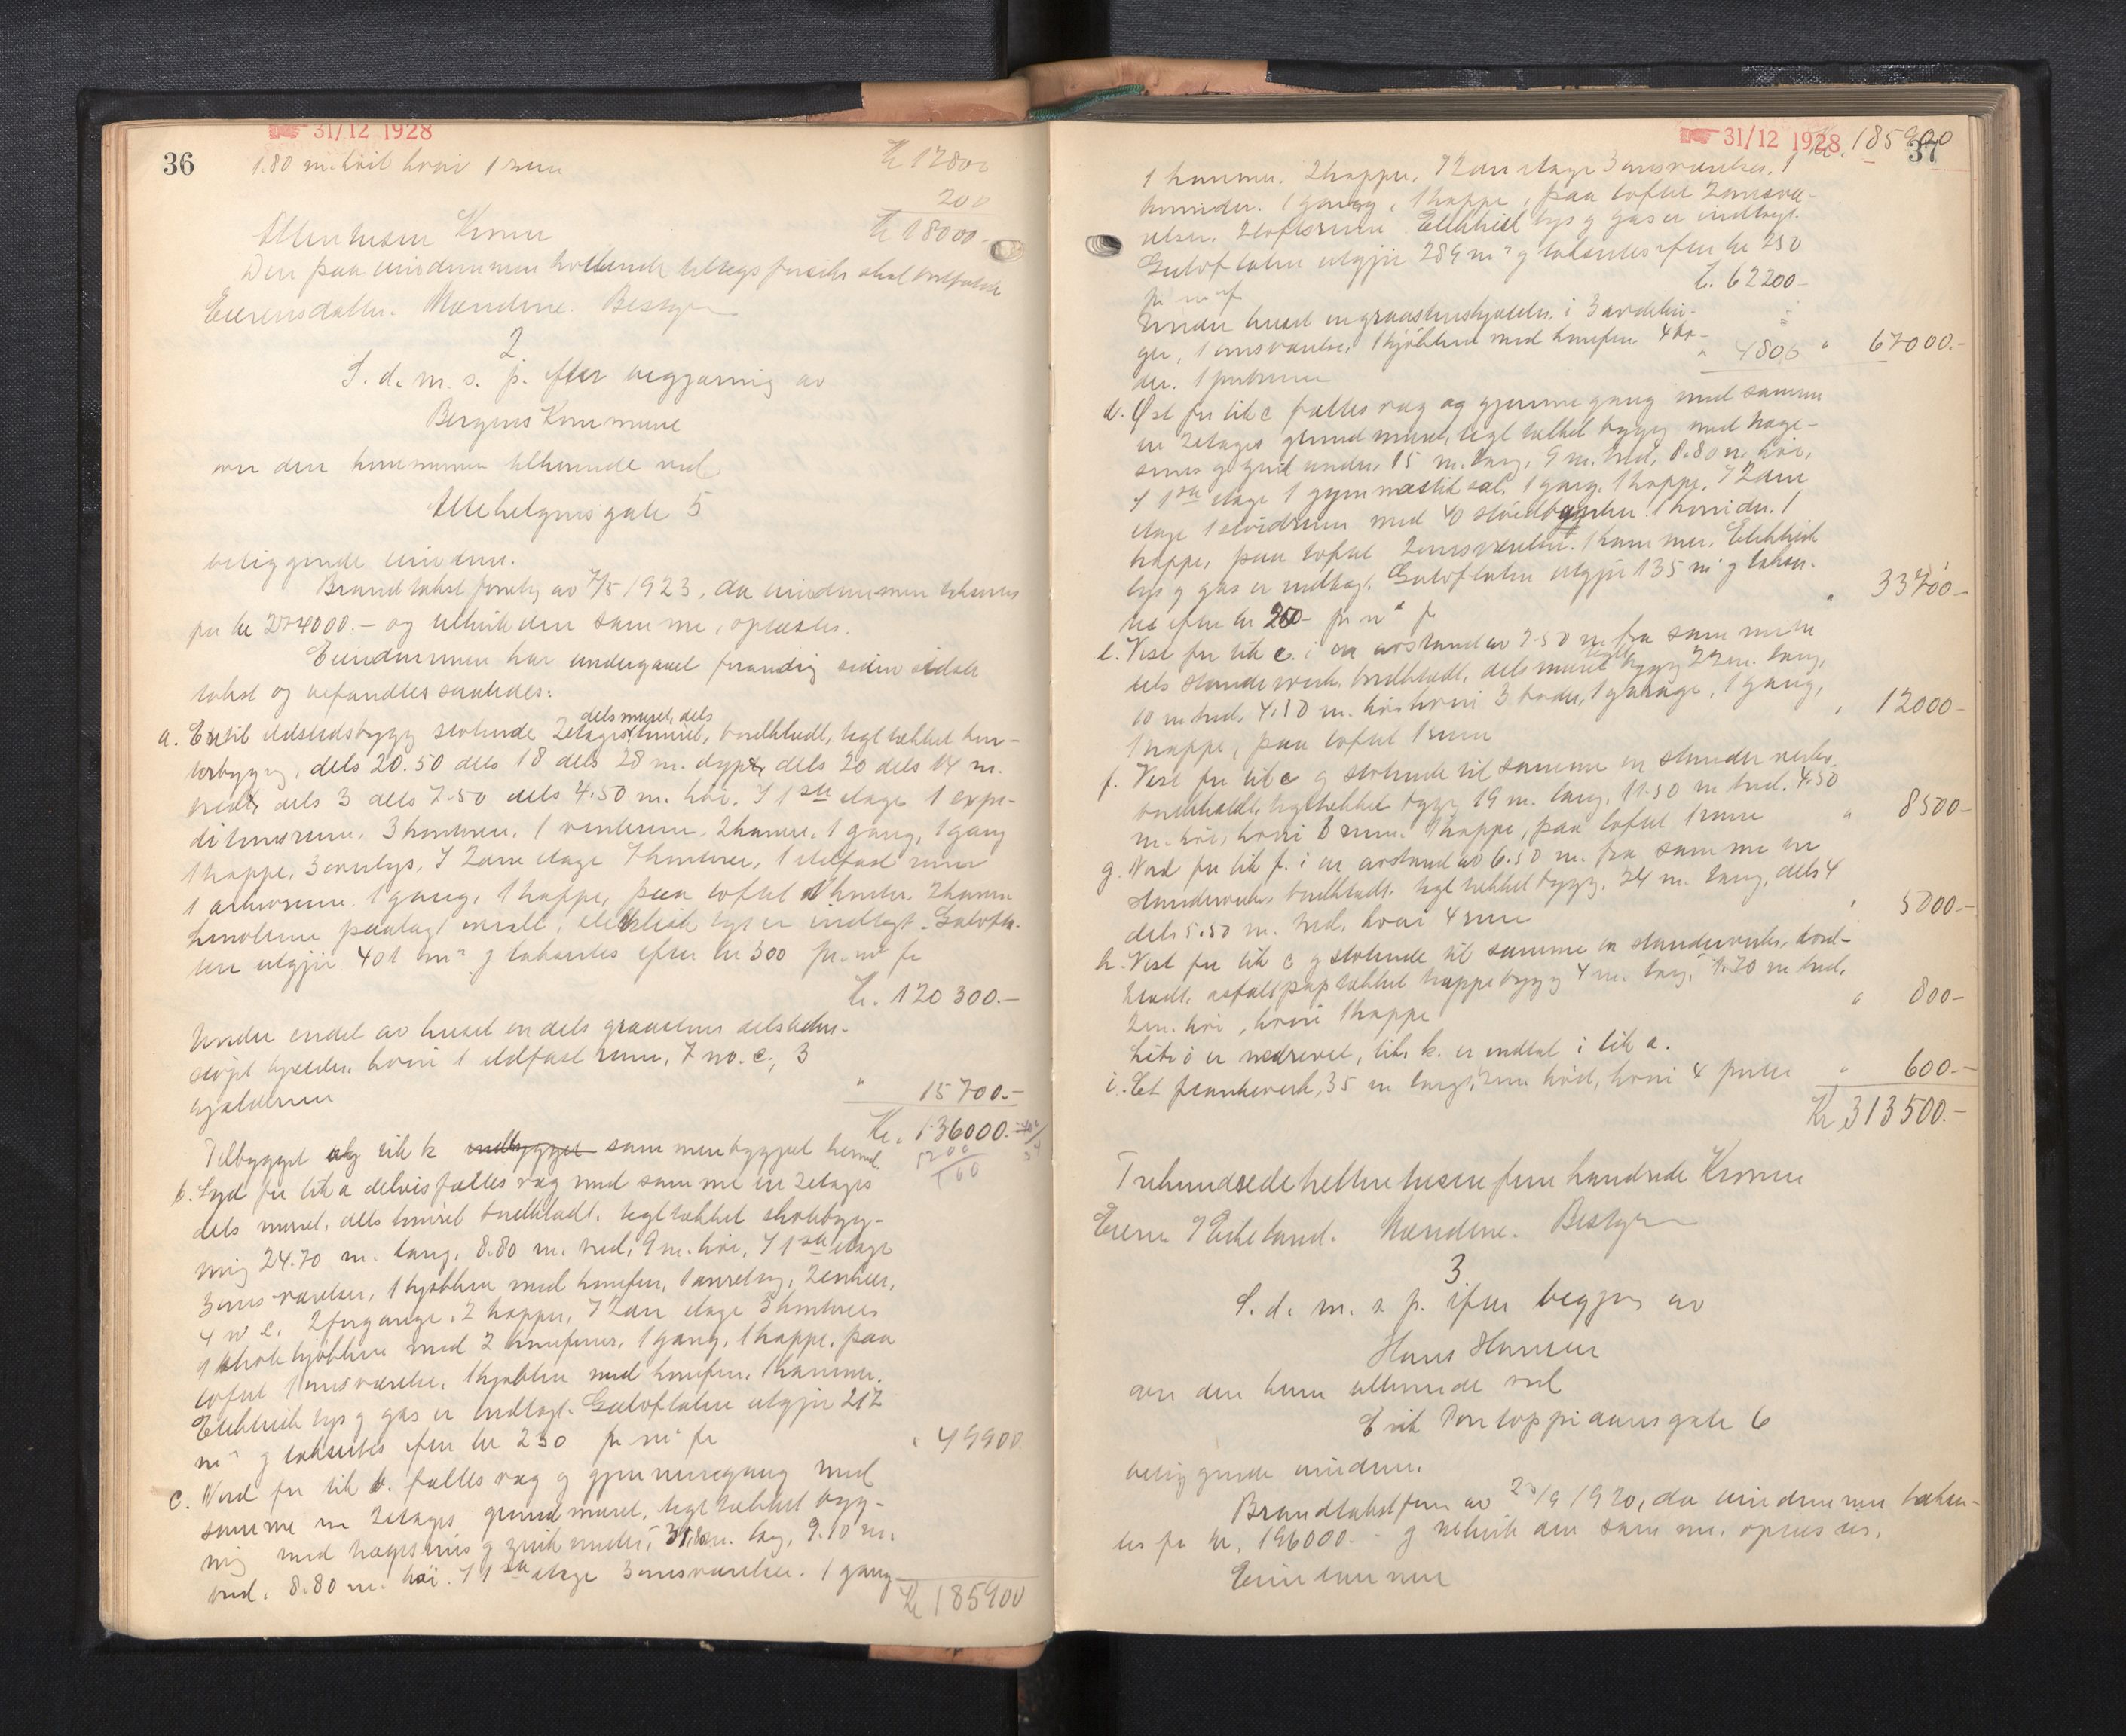 31/12 1928
36
1.80 m. hvit hvori 1 rum Kr 17800
200
Kr 18000.-
Atten tusen Kroner
Den paa eiendommen hvilende tilsyns forsikr skal bortfalde
Eierens datter. Mændene. Bestyr
2
S. d. m. s. p. efter begjæring av
Bergens Kommune
over den kommunen tilhørende ved
Allehelgensgate 5
beliggende eiendom.
Brandtakst forretn av 7/5 1923, da eiendommen takseres
for kr 274000.- og utskrift den samme, oplæstes.
Eiendommen har undergaaet forandrig siden sidste
takst og befandtes saaledes:
dels muret, dels
a. En til ildstedsbygg støtende 2etages tømret, bordklædt, tegltækket kon-
torbygng, dels 20.50 dels 18 dels 28 m. dypt, dels 20 dels 14 m.
bredt, dels 3 dels 7.50 dels 4.50 m. høi. I 1ste etage 1 expe-
ditionsrum, 3 kontorer, 1 venterum, 2 kamre, 1 gang, 1 gang
1 trappe, 3 overlys, I 2den etage 7 kontorer, 1 ildfast rum
1 arkivrum. 1 gang, 1 trappe, paa loftet 1 kontor. 2 kamre
Linoleum paalagt overalt, elektrisk lys er indlagt. Gulvfla-
ten utgjør 401 m² og taksertes efter kr 300 pr. m² for
Kr. 120 300.-
Under endel av huset en dels graastens dels beton-
støpt kjelder, hvori 1 ildfast rum, 7 no. c., 3
kjelderrum " 15 700.-
Kr. 136000.-
Tilbygget og lit k indbygget sammenbygget hermed.
b. Syd for lit a delvis fælles væg med samme en 2etages
dels muret, dels tømret bordklædt, tegltækket skolebyg-
ning 24.70 m. lang, 8.80 m. bred, 9 m. høi, I 1ste etage
3 omsværelser, 1 kjøkken med komfur, 1 anretng, 2 entreer,
4 w c. 2 forgange, 2 trapper, I 2den etage 3 kontorer
1 skolekjøkken med 2 komfurer, 1 gang, 1 trappe, paa
loftet 1 omsværelse, 1 kjøkken med komfur, 1 kammer.
Elektrisk lys og gas er indlagt. Gulvflaten utgjør 217
m² og taksertes efter kr 230 pr m² for " 49900
c. Nord for lit b. fælles væg og gjennemgang med
samme en 2etages grundmuret, tegltækket byg-
ning med trægesims og gesims under, 31.80 m. lang, 9.10 m.
bred, 8.80 m. høi. I 1ste etage 3 omsværelser. 1 gang
Kr 185900
31/12 1928
Kr. 185900
37
1 kammer. 2 trapper. I 2den etage 3 omsværelser. 1
korridor. 1 gang, 1 trappe, paa loftet 2 omsvæ-
relser. 2 loftsrum. Elektrisk lys og gas er indlagt.
Gulvflaten utgjør 289 m² og taksertes efter kr 230
pr m² for Kr. 62200-
Under huset en graastenskjelder, i 3 avdelin-
ger, 1 omsværelse, 1 kjøkken med komfur. 4 bo-
der. 1 rum " 4800 " 67000.-
d. Øst for lit c fælles væg og gjennemgang med samme
en 2etages grundmuret, tegltækket bygng med træge-
sims og gesims under, 15 m. lang, 9 m. bred, 8.80 m. høi,
I 1ste etage 1 gymnastiksal. 1 gang. 1 trappe. I 2den
etage 1 sløidrum med 40 sløidbænker. 1 korridor. 1
trappe, paa loftet 2 omsværelser. 1 kammer. Elektrisk
lys og gas er indlagt. Gulvflaten utgjør 135 m² og takser-
tes efter kr 250 pr m² for " 33700-
e. Vest for lit c. i en avstand av 7.50 m. fra samme en
dels standerverks bordklædt, dels muret teglt. bygng 22 m. lang,
10 m bred, 4.50 m. høi hvori 3 boder, 1 garage, 1 gang,
1 trappe, paa loftet 1 rum " 12000-
f. Vest for lit e og støtende til samme en standerverks
bordklædt, tegltækket bygng 19 m. lang, 11.50 m bred, 4.50
m. høi, hvori 8 rum. 1 trappe, paa loftet 1 rum " 8500-
g. Nord for lit f. i en avstand av 6.50 m. fra samme en
standerverks bordklædt. tegltækket bygng. 24 m. lang, dels 4
dels 5.50 m. bred, hvori 4 rum " 5000-
h. Vest for lit c og støtende til samme en standerverks, bord-
klædt, asfaltpaptækket trappebygng 4 m. lang, 1.70 m bred,
2 m. høi, hvori 1 trappe " 800-
Lit. i er nedrevet, lit. k. er indtat i lit a.
i. Et plankeverk, 35 m langt, 2 m høit, hvori 4 porter " 600.-
Kr 313500.-
Trehundredetrettentusenfemhundrede Kroner
Eieren I Eikeland. Mændene. Bestyr
3
S. d. m. s p. efter begjæring av
Hans Hansen
over den ham tilhørende ved
Erik Pontoppidansgate 6
beliggende eiendom.
Brandtakstforr av 20/9 1920, da eiendommen takser-
tes for kr. 196000.- og utskrift den samme, oplæstes.
Eiendommen